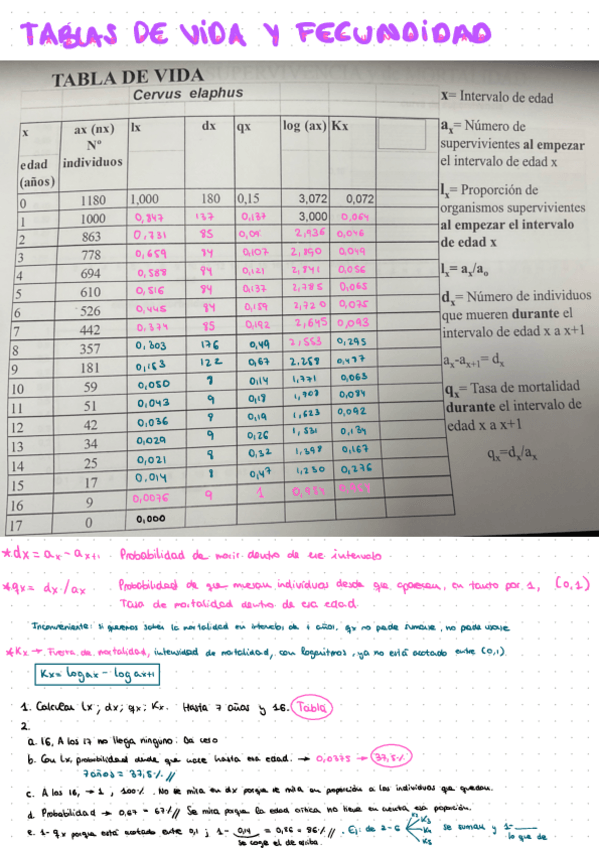 TABLAS DE VIDA Y FECUNDIDAD
TABLA DE VIDA
Cervus elaphus
x edad (años) ax (nx) Nº individuos lx dx qx log (ax) Kx
0 1180 1,000 180 0,15 3,072 0,072
1 1000 0,847 137 0,137 3,000 0,064
2 863 0,731 85 2,936 0,046
3 778 0,659 84 0,107 2,890 0,049
4 694 0,588 84 0,121 2,841 0,056
5 610 0,516 84 0,137 2,785 0,065
6 526 0,445 84 0,159 2,720 0,075
7 442 0,374 85 0,192 2,645 0,093
8 357 0,303 176 0,49 2,553 0,295
9 181 0,153 122 0,67 2,258 0,487
10 59 0,050 8 0,14 1,771 0,063
11 51 0,043 9 0,18 0,084
12 42 0,036 8 0,19 1,623 0,092
13 34 0,029 9 0,26 1,531 0,134
14 25 0,021 8 0,32 1,398 0,167
15 17 0,014 8 0,47 1,230 0,276
16 9 0,0076 9 1 0,954
17 0 0,000
x= Intervalo de edad
ax= Número de
supervivientes al empezar
el intervalo de edad x
lx= Proporción de
organismos supervivientes
al empezar el intervalo
de edad x
lx= ax/ao
dx= Número de individuos
que mueren durante el
intervalo de edad x a x+1
ax-ax+1= dx
qx= Tasa de mortalidad
durante el intervalo de
edad x a x+1
qx=dx/ax
*dx = ax - ax+1 Probabilidad de morir dentro de ese intervalo
*qx = dx/ax Probabilidad de que mueran individuos desde que aparecen, en tanto por 1, (0,1)
Tasa de mortalidad dentro de esa edad.
Inconveniente: si queremos saber la mortalidad en intervalos de + años, qx no puede sumarse, no puede usarse
*Kx → Fuerza de mortalidad, intensidad de mortalidad, con logaritmos, ya no está acotado entre (0,1).
Kx = log ax - log ax+1
1. Calcular lx; dx; qx; Kx. Hasta 7 años y 16. Tabla
2.
a. 16, A los 17 no llega ninguno: Da cero
b. Con lx, probabilidad desde que nace hasta esa edad. → 0,0375 → 37,5%
7 años = 37,5% //
c. A los 16, → 1, 100%. No se mira en dx porque se mira en proporción a los individuos que quedan.
d. Probabilidad → 0,67 = 67% // Se mira porque la edad crítica no tiene en cuenta esa proporción.
e. 1-qx porque está acotado entre 0,1; 1- 0,14 = 0,86 = 86% //. Ej: de 2-6 K3 K4 K5 se suman y 1-
se coge el de arriba. lo que de